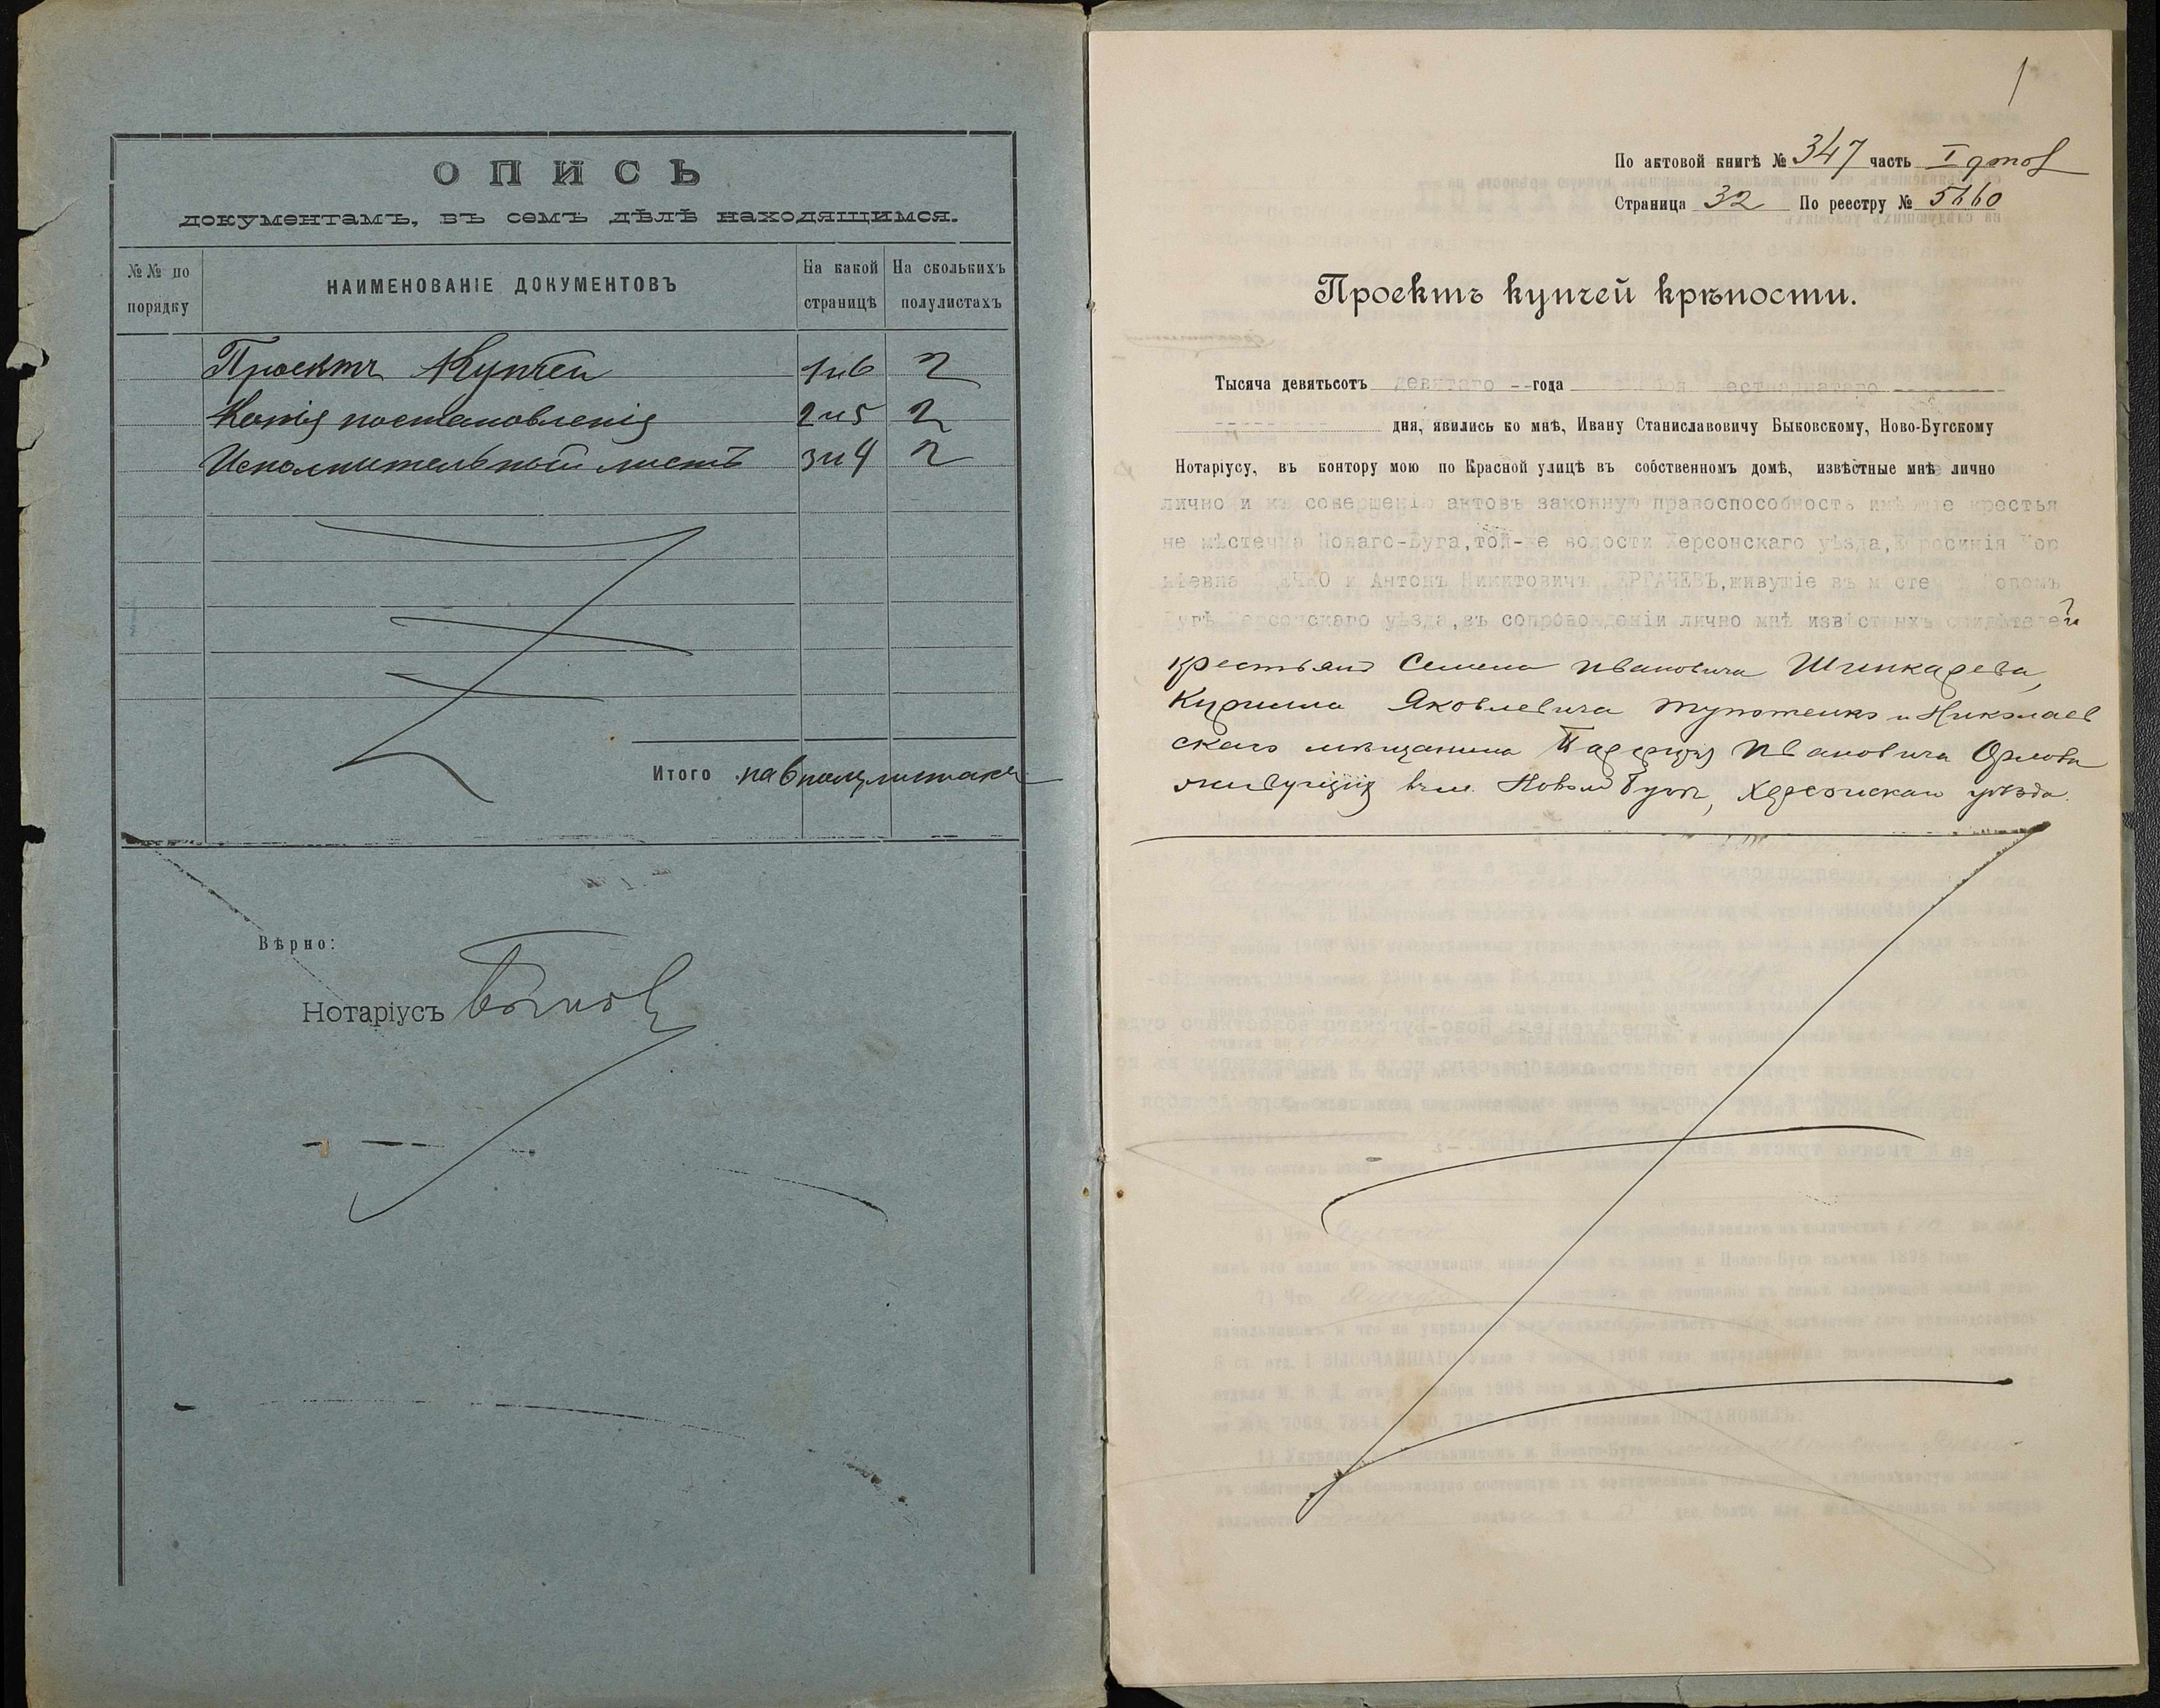 ОПИСЬ
документамъ, въ семъ дѣлѣ находящимся.
№№ по порядку
НАИМЕНОВАНІЕ ДОКУМЕНТОВЪ
На какой страницѣ
На сколькихъ полулистахъ
Проектъ Купчей 1и6 2
Копія постановленія 2и5 2
Исполнительный листъ 3и4 2
Итого на 6 полулистахъ
Вѣрно:
Нотаріусъ
1
По актовой книгѣ № 347 часть I
Страница 32 По реестру №
Проектъ купчей крѣпости.
Тысяча девятьсотъ девятаго года шестнадцатаго
дня, явились ко мнѣ, Ивану Станиславовичу Быковскому, Ново-Бугскому
Нотаріусу, въ контору мою по Красной улицѣ въ собственномъ домѣ, извѣстные мнѣ лично
лично и къ совершенію актовъ законную правоспособность имѣющіе крестья
не мѣстечка Новаго-Буга, той-же волости Херсонскаго уѣзда,
и Антонъ Никитовичъ ДЕРГАЧЕВЪ, живущіе въ мѣстечкѣ Новомъ
Бугѣ Херсонскаго уѣзда, въ сопровожденіи лично мнѣ извѣстныхъ свидѣтелей
крестьянъ Семена Ивановича Шинкарева,
Кирилла Яковлевича и Николаев
скаго мѣщанина Ивановича Орлова
живущихъ въ м. Новомъ Бугѣ, Херсонскаго уѣзда.